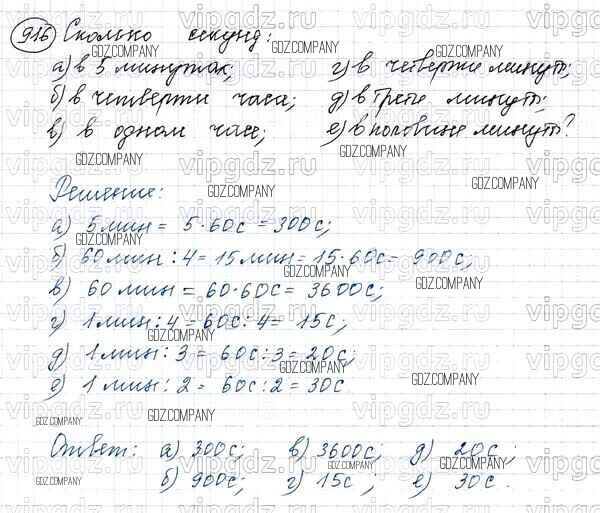 916 Сколько секунд:
а) в 5 минутах; г) в четверти минуты;
б) в четверти часа; д) в трети минуты;
в) в одном часе; е) в половине минуты?
Решение:
а) 5 мин = 5·60с = 300с;
б) 60 мин : 4 = 15 мин = 15·60с = 900с;
в) 60 мин = 60·60с = 3600с;
г) 1 мин : 4 = 60с : 4 = 15с;
д) 1 мин : 3 = 60с : 3 = 20с;
е) 1 мин : 2 = 60с : 2 = 30с
Ответ: а) 300с; в) 3600с; д) 20с;
б) 900с; г) 15с; е) 30с.
vipgdz.ru
GDZ.COMPANY